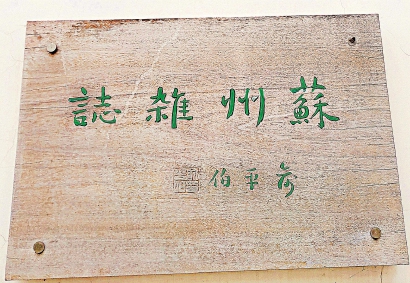 蘇州雜誌
俞平伯